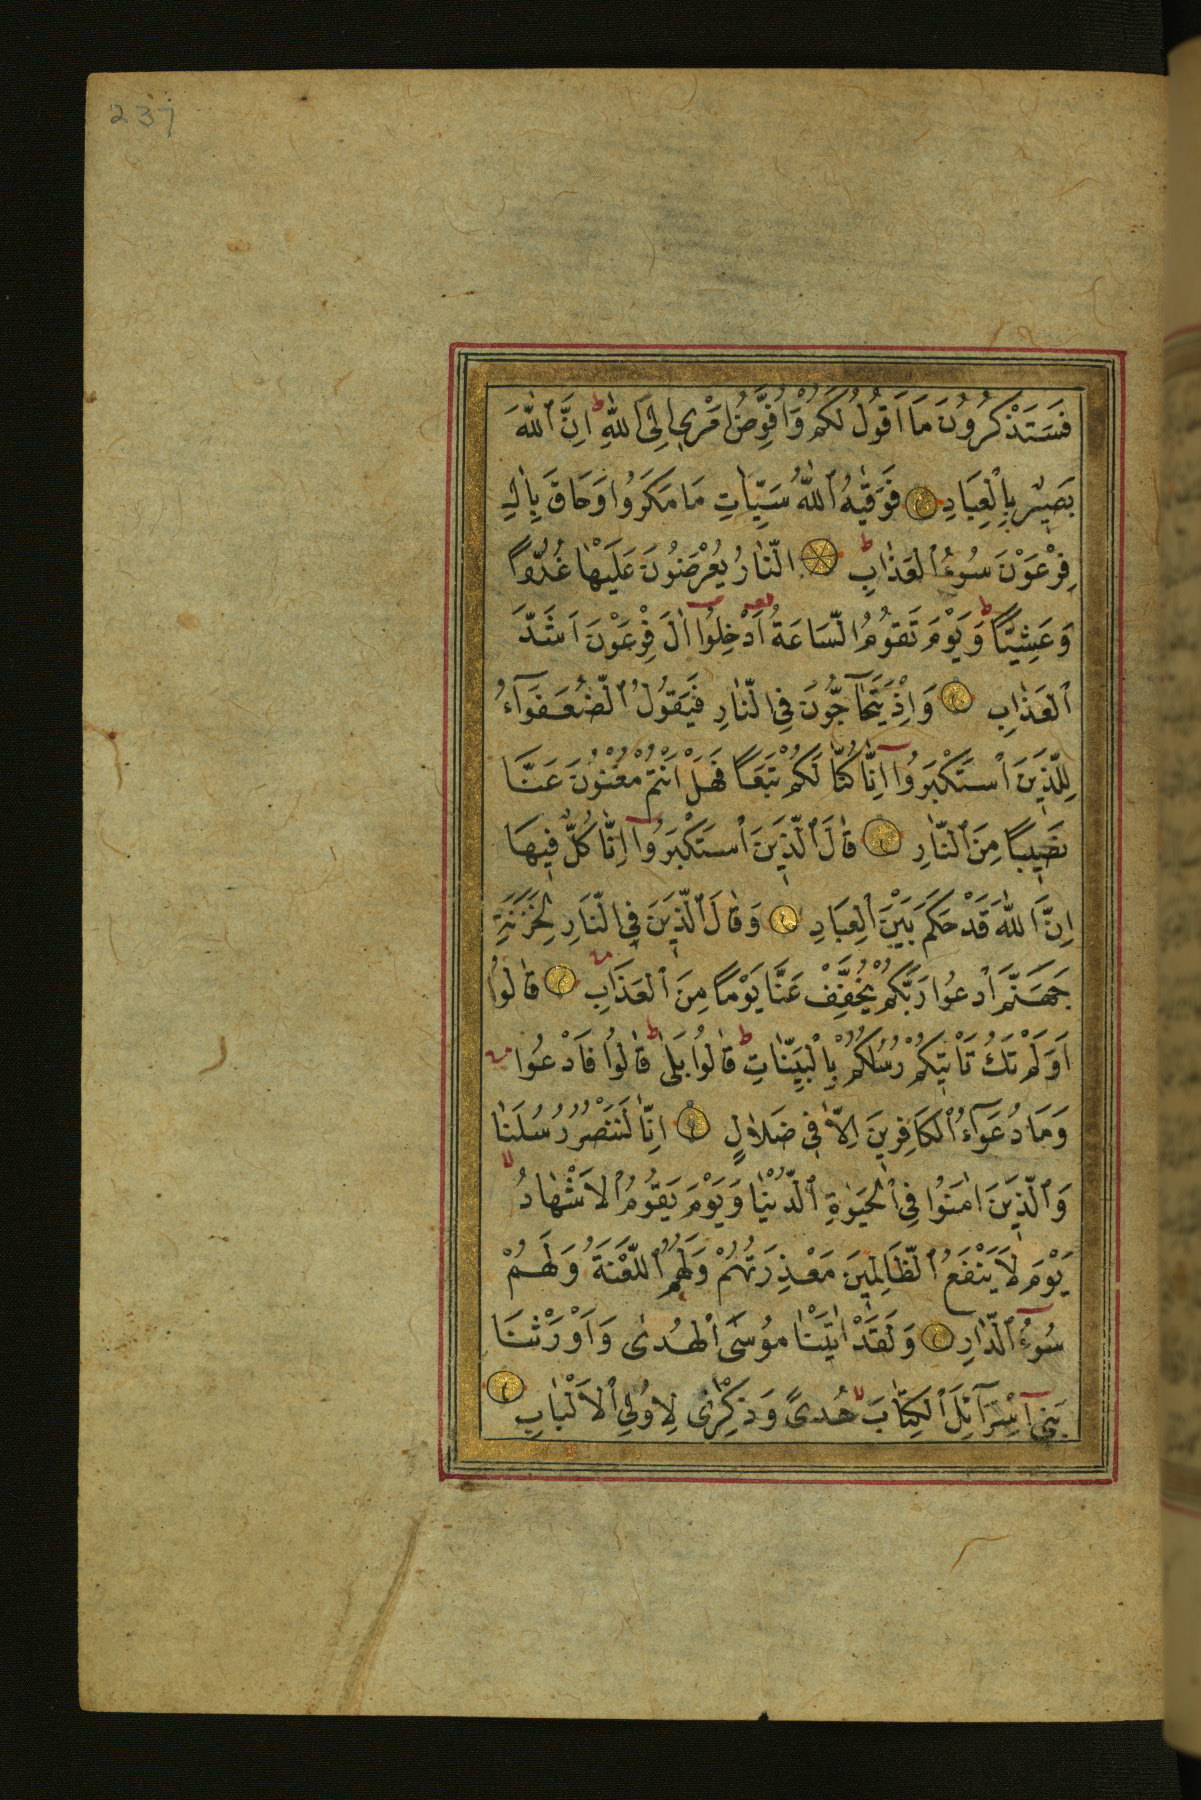 237
فَسَتَذْكُرُونَ مَا اَقُولُ لَكُمْ وَاُفَوِّضُ اَمْرِى اِلَى اللّٰهِ ط اِنَّ اللّٰهَ
بَصِيرٌ بِالْعِبَادِ فَوَقٰيهُ اللّٰهُ سَيِّاٰتِ مَا مَكَرُوا وَحَاقَ بِاٰلِ
فِرْعَوْنَ سُوءُ الْعَذٰابِ ط اَلنّٰارُ يُعْرَضُونَ عَلَيْهٰا غُدُوًّا
وَعَشِيًّا ط وَيَوْمَ تَقُومُ السَّاعَةُ اَدْخِلُوا اٰلَ فِرْعَوْنَ اَشَدَّ
الْعَذٰابِ وَاِذْ يَتَحٰآجُّونَ فِى النّٰارِ فَيَقُولُ الضُّعَفٰٓؤُا
لِلَّذِينَ اسْتَكْبَرُوا اِنّٰا كُنّٰا لَكُمْ تَبَعًا فَهَلْ اَنْتُمْ مُغْنُونَ عَنَّا
نَصِيبًا مِنَ النّٰارِ قٰالَ الَّذِينَ اسْتَكْبَرُوا اِنّٰا كُلٌّ فِيهَا
اِنَّ اللّٰهَ قَدْ حَكَمَ بَيْنَ الْعِبَادِ وَقٰالَ الَّذِينَ فِى النَّارِ لِخَزَنَةِ
جَهَنَّمَ ادْعُوا رَبَّكُمْ يُخَفِّفْ عَنَّا يَوْمًا مِنَ الْعَذَابِ قٰالُوا
اَوَلَمْ تَكُ تَاْتِيكُمْ رُسُلُكُمْ بِالْبَيِّنٰاتِ ط قٰالُوا بَلٰى ط قٰالُوا فَادْعُوا
وَمَا دُعَآءُ الْكَافِرِينَ اِلّٰا فِى ضَلٰالٍ اِنّٰا لَنَنْصُرُ رُسُلَنٰا
وَالَّذِينَ اٰمَنُوا فِى الْحَيٰوةِ الدُّنْيٰا وَيَوْمَ يَقُومُ الْاَشْهٰادُ
يَوْمَ لَا يَنْفَعُ الظَّالِمِينَ مَعْذِرَتُهُمْ وَلَهُمُ اللَّعْنَةُ وَلَهُمْ
سُوٓءُ الدّٰارِ وَلَقَدْ اٰتَيْنٰا مُوسَى الْهُدٰى وَاَوْرَثْنَا
بَنِىٓ اِسْرَآئِلَ الْكِتٰابَ هُدىً وَذِكْرٰى لِاُولِى الْاَلْبٰابِ